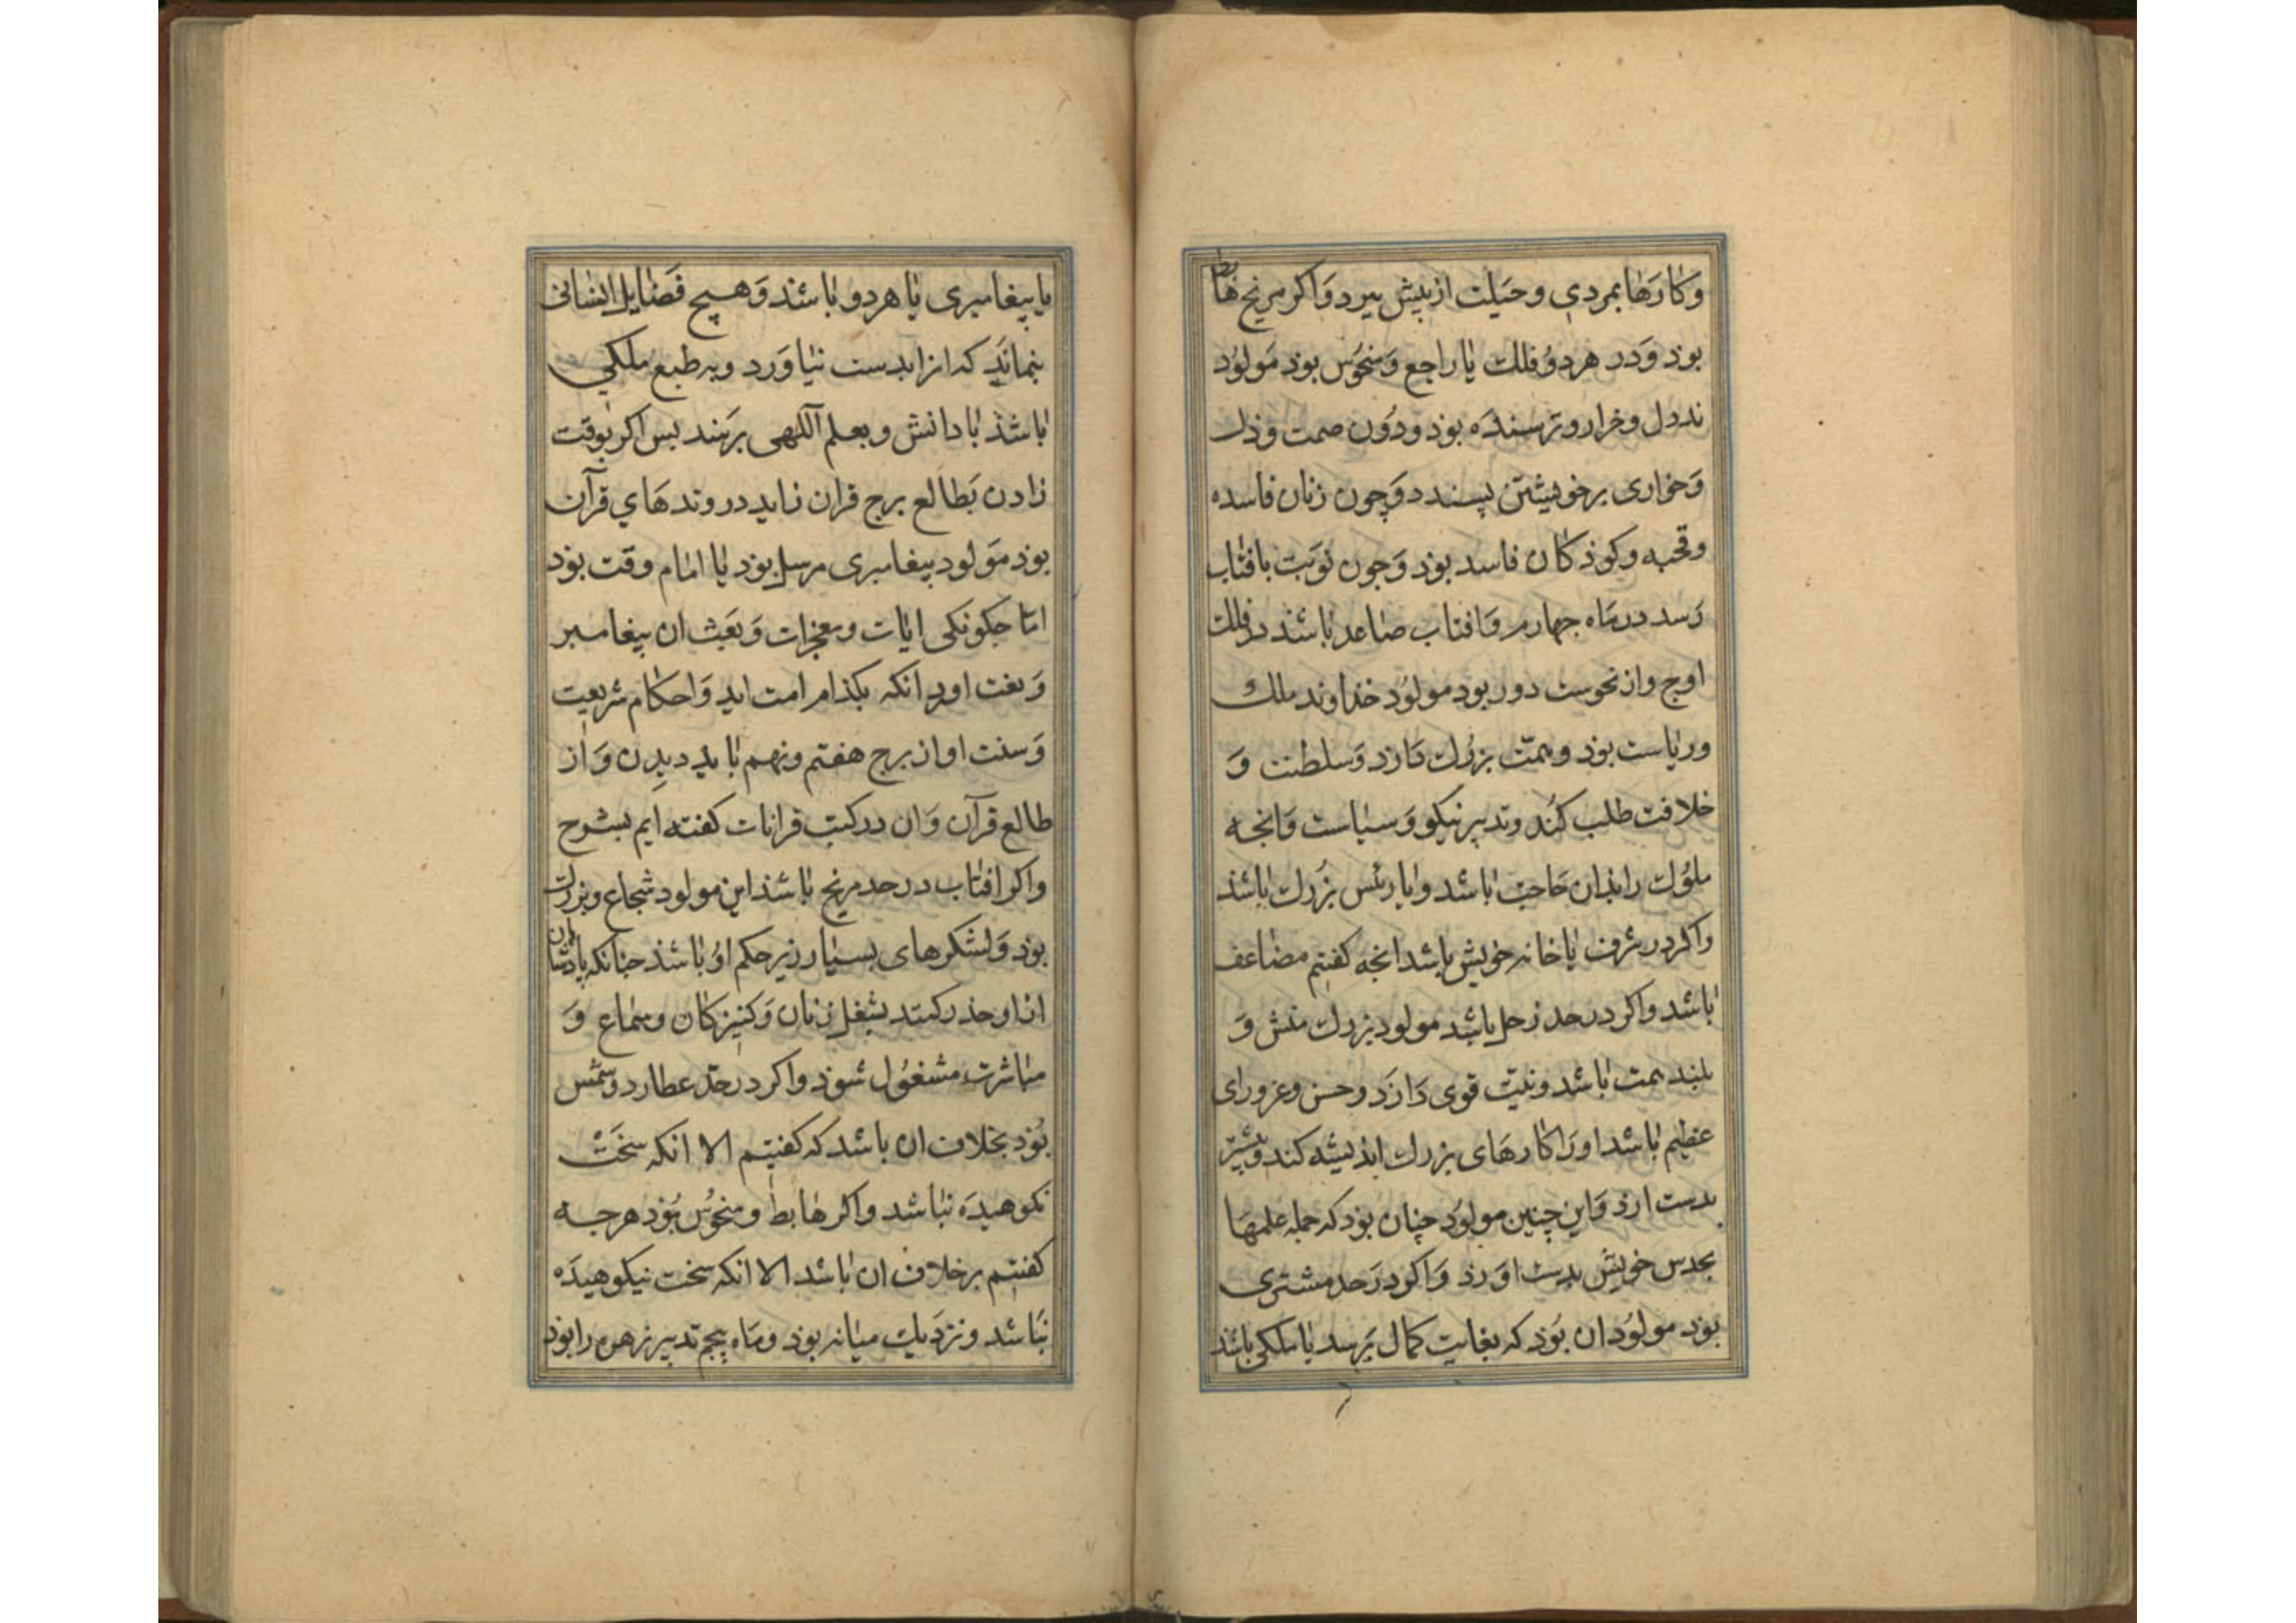 وکارها بمردی وحیلت از بیش ببرد واکر مریخ هابط
بوذ ودر هر دو فلک یا راجع ومنحوس بوذ مولود
بددل وخوار وترسنده بوذ ودون همت وذل
وخواری بر خویشتن پسندد وچون زنان فاسده
وقحبه وکوذکان فاسد بوذ وجون نوبت بافتاب
رسد در ماه جهارم وافتاب صاعد باشد در فلک
اوج واز نحوست دور بود مولود خذاوند ملک
وریاست بوذ وهمت بزرک دارد وسلطنت و
خلافت طلب کند وتدبیر نیکو وسیاست وانجه
ملوک را بذان حاجت باشد وبا رئس بزرک باشذ
واکر در شرف یا خانه خویش باشد انجه کفتم مضاعف
باشد واکر در حد زحل باشد مولود بزرک منش و
بلند همت باشد ونیت قوی دارد وحسن وعزو رای
عظیم باشد اورا کارهای بزرک اندیشه کند وبیشتر
بدست ارذ واین چنین مولود چنان بوذ که جمله علمها
بحدس خویش بدست اورذ واکر در حد مشتری
بوذ مولود ان بوذ که بغایت کمال برسد یا ملکی باشد
یا پیغامبری یا هر دو باشند وهیچ فضایل انسانی
بنماند که انرا بدست نیاورد وبه طبع ملکی
باشذ با دانش وبعلم آلهی برسند بس اکر بوقت
زادن بطالع برج قران زاید در وتدهای قرآن
بوذ مولود بیغامبری مرسل بوذ یا امام وقت بوذ
امّا جکونکی ایات ومعجزات وبعث ان بیغامبر
وبعت او وانکه بکذام امت اید واحکام شریعت
وسنت او از برج هفتم ونهم باید دیدن واز
طالع قرآن وان در کتب قرانات کفته ایم بشرح
واکر افتاب در حد مریخ باشذ این مولود شجاع وبزرک
بوذ ولشکرهای بسیار زیر حکم او باشذ جنانکه پادشاهان
از او حذر کنند بشغل زنان وکنیزکان وسماع و
مباشرت مشغول شوذ واکر در حد عطارد وشمس
بوذ بخلاف ان باشد که کفتیم الا انکه سخت
نکوهیده نباشد واکر هابط ومنحوس بوذ هرجه
کفتیم برخلاف ان باشد الا انکه سخت نیکوهیده
نباشد ونزدیک میانه بوذ وماه پنجم تدبیر زهره را بوذ